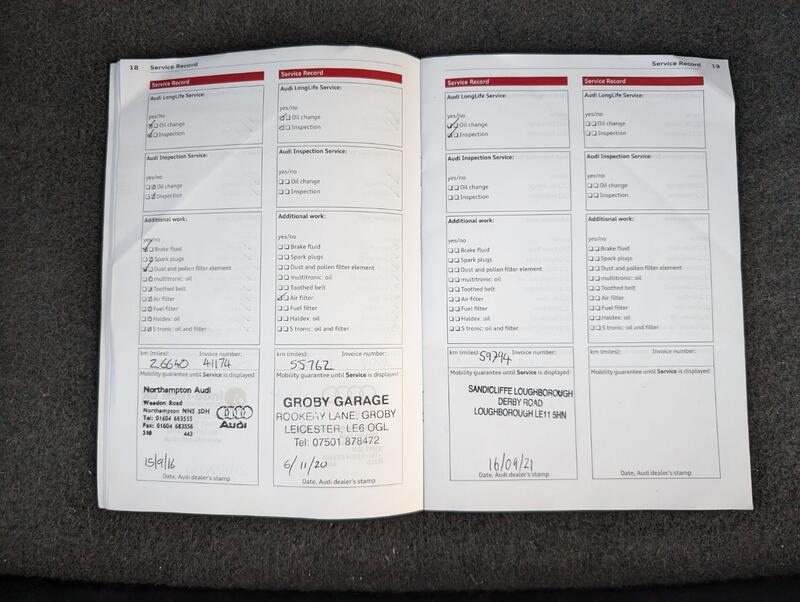 18 Service Record
Service Record
Audi LongLife Service:
yes/no
Oil change
Inspection
Audi Inspection Service:
yes/no
Oil change
Inspection
Additional work:
yes/no
Brake fluid
Spark plugs
Dust and pollen filter element
multitronic: oil
Toothed belt
Air filter
Fuel filter
Haldex: oil
S tronic: oil and filter
km (miles): Invoice number:
26640 41174
Mobility guarantee until Service is displayed
Northampton Audi
Weedon Road
Northampton NN5 5DH
Tel: 01604 683555
Fax: 01604 683556
210 443
Audi
15/9/16
Date, Audi dealer's stamp
Service Record
Audi LongLife Service:
yes/no
Oil change
Inspection
Audi Inspection Service:
yes/no
Oil change
Inspection
Additional work:
yes/no
Brake fluid
Spark plugs
Dust and pollen filter element
multitronic: oil
Toothed belt
Air filter
Fuel filter
Haldex: oil
S tronic: oil and filter
km (miles): Invoice number:
55762
Mobility guarantee until Service is displayed
GROBY GARAGE
ROOKERY LANE, GROBY
LEICESTER, LE6 OGL
Tel: 07501 878472
6/11/20
Date, Audi dealer's stamp
Service Record 19
Service Record
Audi LongLife Service:
yes/no
Oil change
Inspection
Audi Inspection Service:
yes/no
Oil change
Inspection
Additional work:
yes/no
Brake fluid
Spark plugs
Dust and pollen filter element
multitronic: oil
Toothed belt
Air filter
Fuel filter
Haldex: oil
S tronic: oil and filter
km (miles): 59794 Invoice number:
Mobility guarantee until Service is displayed
SANDICLIFFE LOUGHBOROUGH
DERBY ROAD
LOUGHBOROUGH LE11 5HN
16/09/21
Date, Audi dealer's stamp
Service Record
Audi LongLife Service:
yes/no
Oil change
Inspection
Audi Inspection Service:
yes/no
Oil change
Inspection
Additional work:
yes/no
Brake fluid
Spark plugs
Dust and pollen filter element
multitronic: oil
Toothed belt
Air filter
Fuel filter
Haldex: oil
S tronic: oil and filter
km (miles): Invoice number:
Mobility guarantee until Service is displayed
Date, Audi dealer's stamp